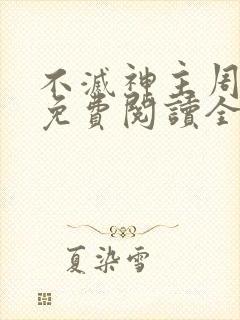 不滅神主周
免費閱讀全
夏染雪